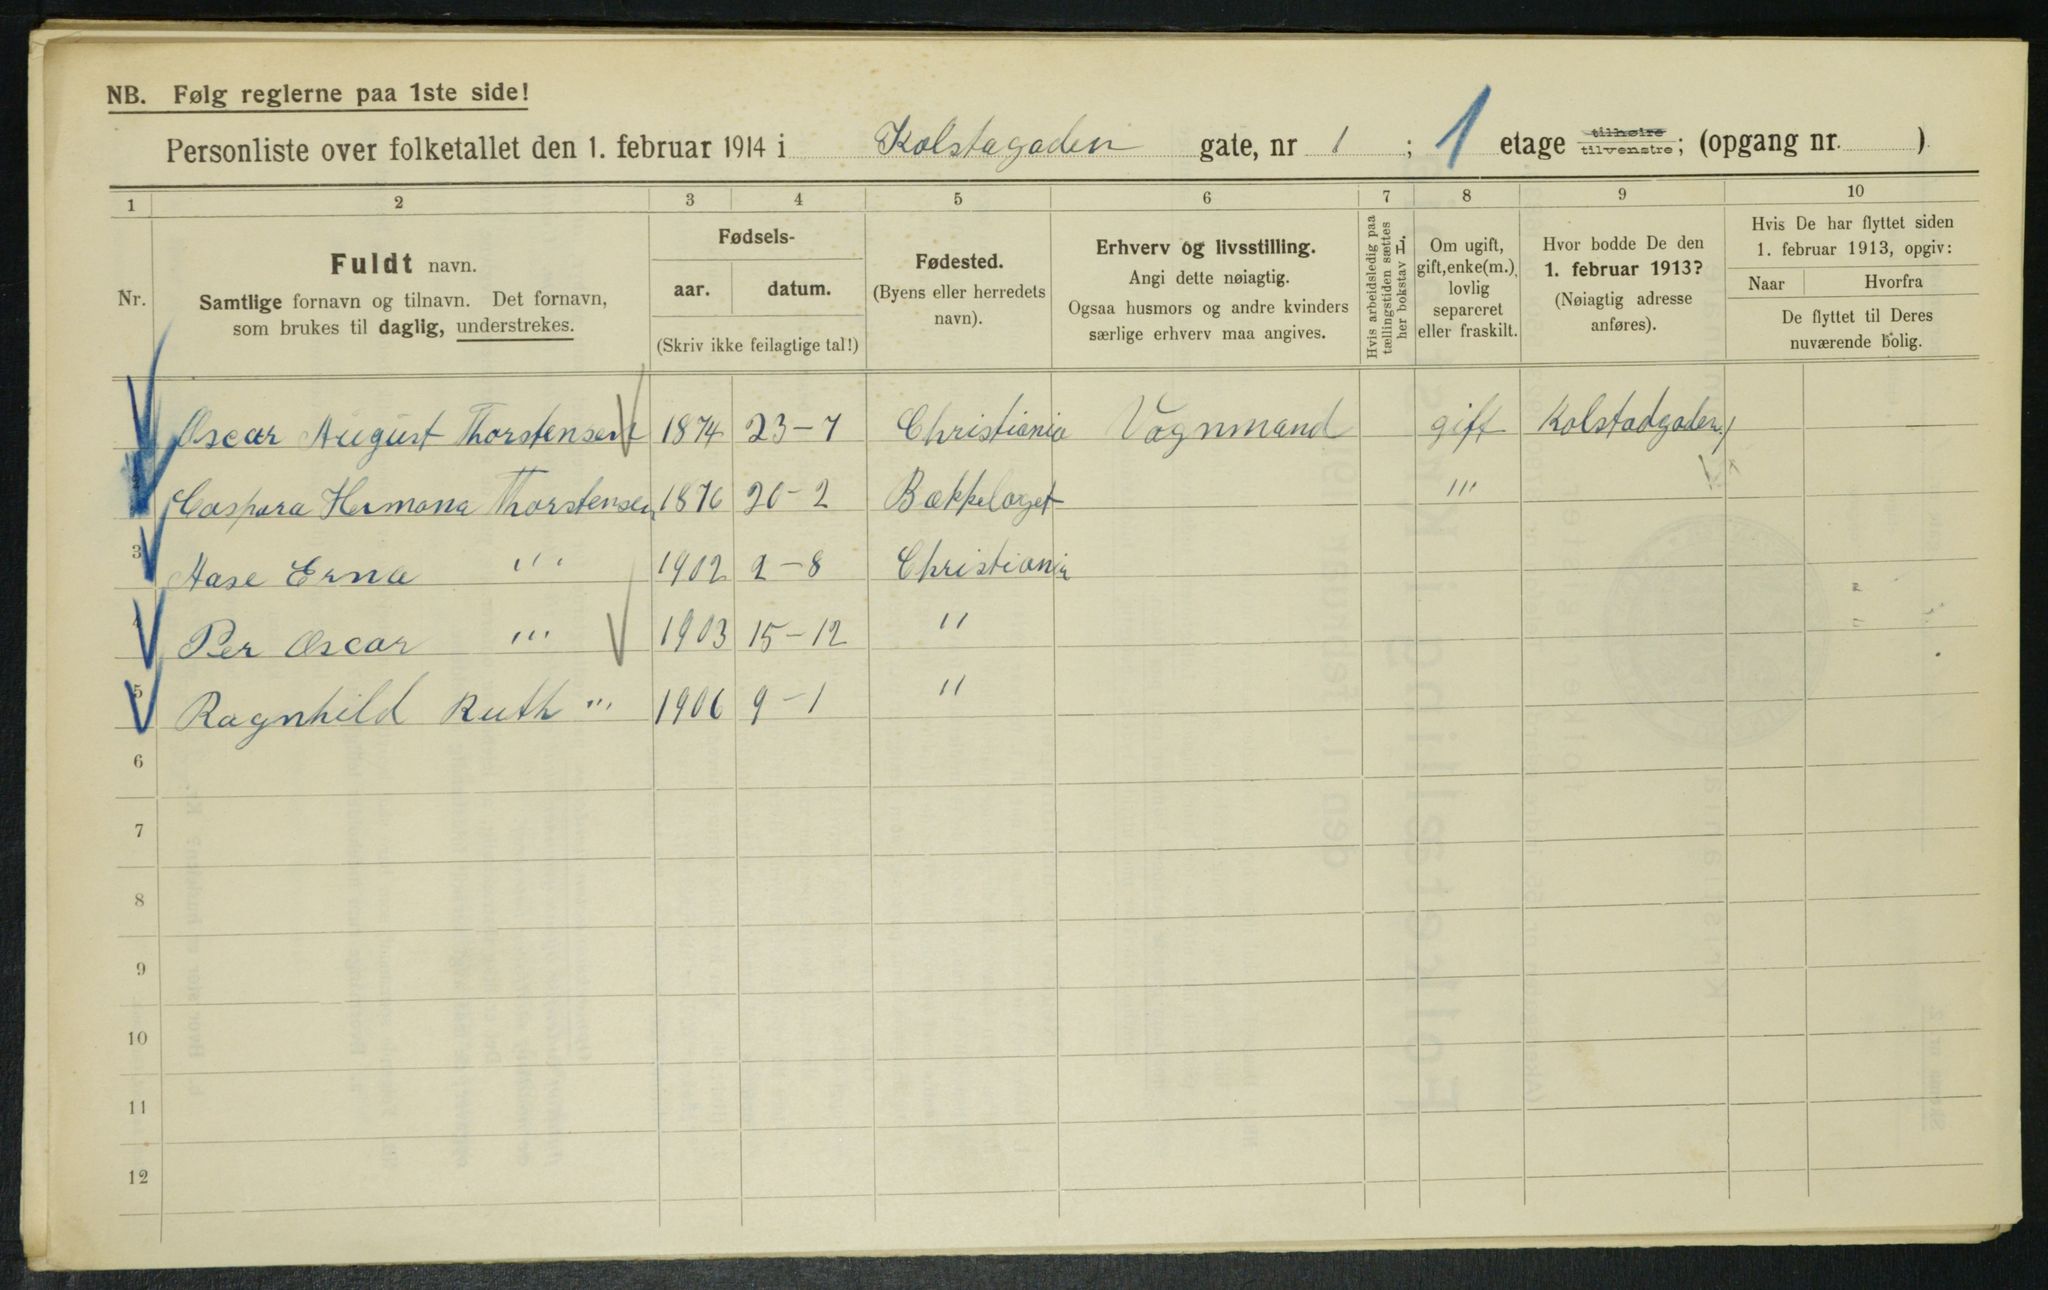 NB. Følg reglerne paa 1ste side!
Personliste over folketallet den 1. februar 1914 i Kolstagaden gate, nr 1 ; 1 etage tilhøire tilvenstre; (opgang nr. )
1 2 3 4 5 6 7 8 9 10
Nr.
Fuldt navn.
Samtlige fornavn og tilnavn. Det fornavn,
som brukes til daglig, understrekes.
Fødsels-
aar. datum.
(Skriv ikke feilagtige tal!)
Fødested.
(Byens eller herredets
navn).
Erhverv og livsstilling.
Angi dette nøiagtig.
Ogsaa husmors og andre kvinders
særlige erhverv maa angives.
Hvis arbeidsledig paa
tællingstiden sættes
her bokstav L.
Om ugift,
gift, enke(m.),
lovlig
separeret
eller fraskilt.
Hvor bodde De den
1. februar 1913?
(Nøiagtig adresse
anføres).
Hvis De har flyttet siden
1. februar 1913, opgiv:
Naar Hvorfra
De flyttet til Deres
nuværende bolig.
Oscar August Thorstensen 1874 23-7 Christiania Vognmand gift Kolstadgaden 1
Caspara Hermana Thorstensen 1876 20-2 Bækkelaget "'
3 Aase Erna "' 1902 2-8 Christiania
4 Per Oscar "' 1903 15-12 "
5 Ragnhild Ruth "' 1906 9-1 "
6
7
8
9
10
11
12